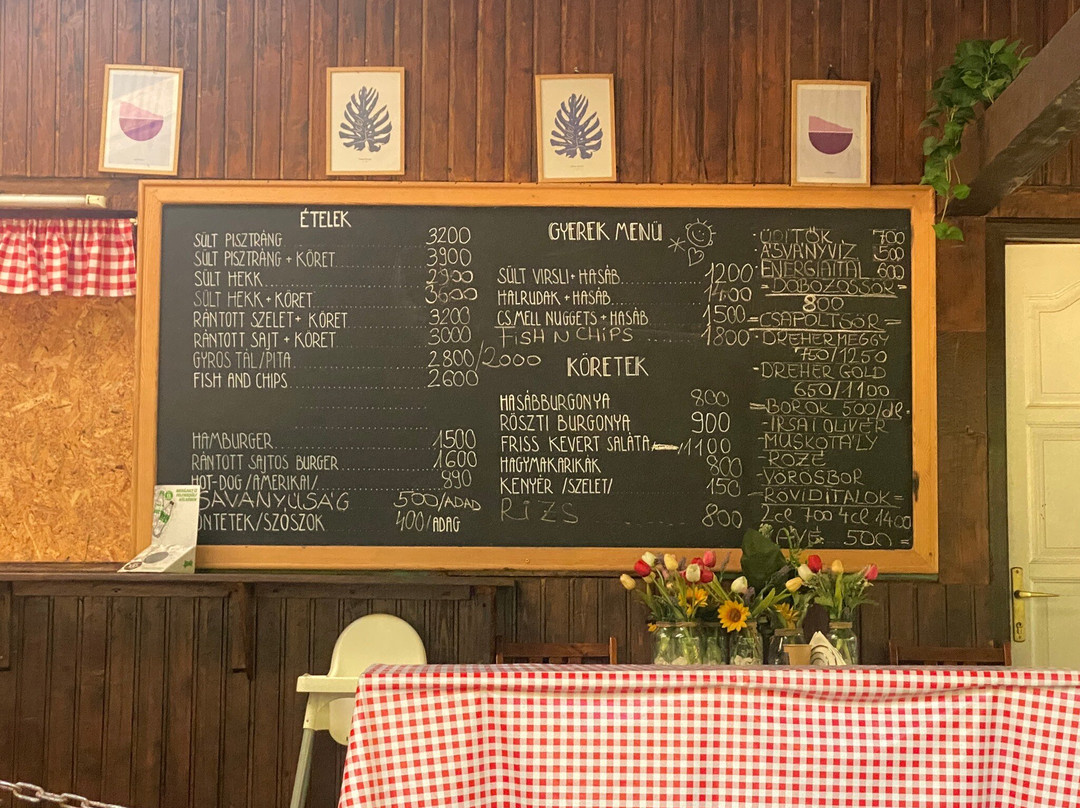 ÉTELEK
SÜLT PISZTRÁNG 3200
SÜLT PISZTRÁNG + KÖRET 3900
SÜLT HEKK 2900
SÜLT HEKK + KÖRET 3600
RÁNTOTT SZELET + KÖRET 3200
RÁNTOTT SAJT + KÖRET 3000
GYROS TÁL/PITA 2800/2000
FISH AND CHIPS 2600
HAMBURGER 1500
RÁNTOTT SAJTOS BURGER 1600
HOT-DOG /AMERIKAI/ 890
SAVANYÚSÁG 500/ADAG
ÖNTETEK/SZÓSZOK 400/ADAG
GYEREK MENÜ
SÜLT VIRSLI + HASÁB 1200
HALRUDAK + HASÁB 1400
CS.MELL NUGGETS + HASÁB 1500
FISH N CHIPS 1800
KÖRETEK
HASÁBBURGONYA 800
RÖSZTI BURGONYA 900
FRISS KEVERT SALÁTA 1100
HAGYMAKARIKÁK 800
KENYÉR /SZELET/ 150
RIZS 800
- ÜDÍTŐK 700
- ÁSVÁNYVÍZ 500
ENERGIAITAL 600
= DOBOZOSSÖR =
800
= CSAPOLTSÖR =
- DREHER MEGGY
750/1250
- DREHER GOLD
650/1100
= BOROK 500/dl.
- IRSAI OLIVÉR
- MUSKOTÁLY
- ROZÉ
- VÖRÖSBOR
= RÖVIDITALOK =
2cl 700 4cl 1400
KÁVÉ 500 =